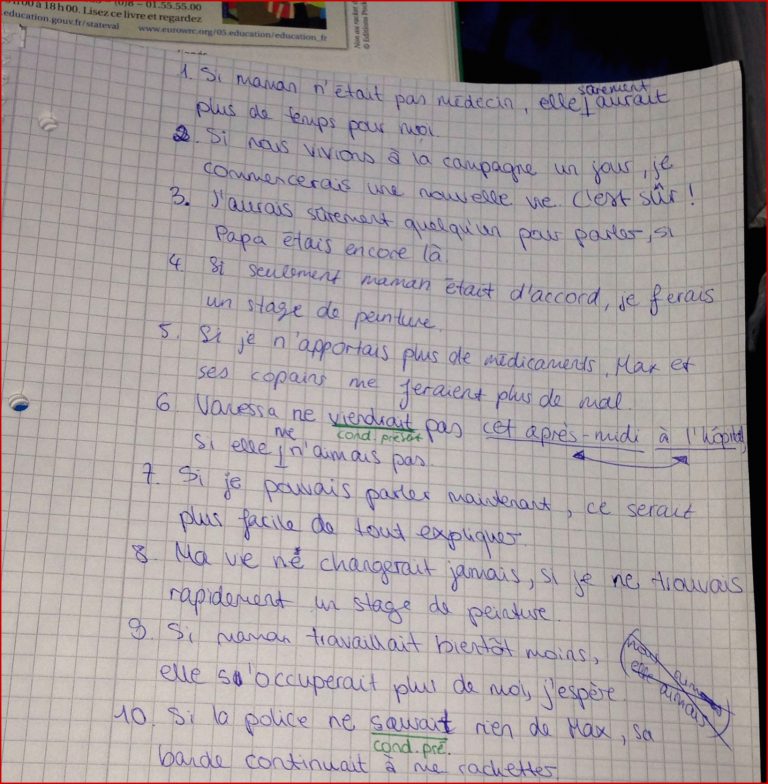 à 18h00. Lisez ce livre et regardez
.education.gouv.fr/stateval www.eurowrc.org/05.education/education_fr
© Editions
1. Si maman n'était pas médecin, elle sûrement aurait
plus de temps pour moi.
2. Si nous vivions à la campagne un jour, je
commencerais une nouvelle vie. C'est sûr!
3. J'aurais sûrement quelqu'un pour parler, si
Papa étais encore là.
4. Si seulement maman était d'accord, je ferais
un stage de peinture.
5. Si je n'apportais plus de médicaments, Max et
ses copains me feraient plus de mal.
6. Vanessa ne viendrait pas cet après-midi à l'hôpital
cond. présent
si elle me n'aimais pas.
7. Si je pouvais parler maintenant, ce serait
plus facile de tout expliquer.
8. Ma vie ne changerait jamais, si je ne trouvais
rapidement un stage de peinture.
9. Si maman travaillait bientôt moins,
elle s'occuperait plus de moi, j'espère.
10. Si la police ne sauvait rien de Max, sa
cond. pré.
bande continuait à me racketter.